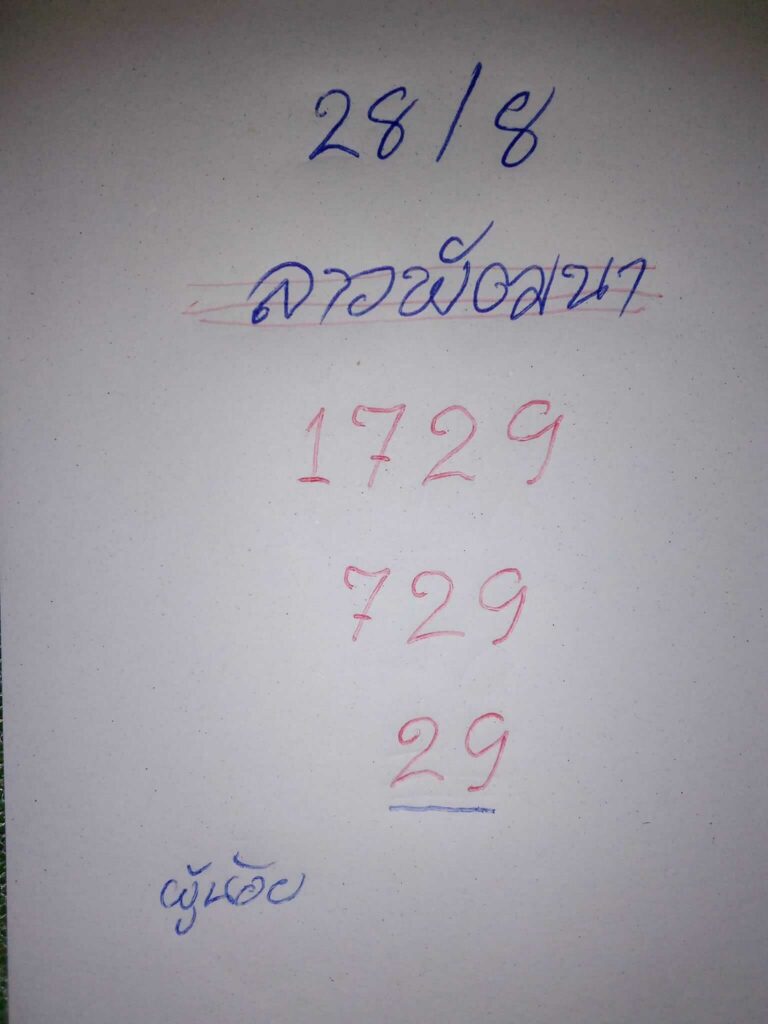 28/8
ลาวพัฒนา
1729
729
29
ผู้น้อย